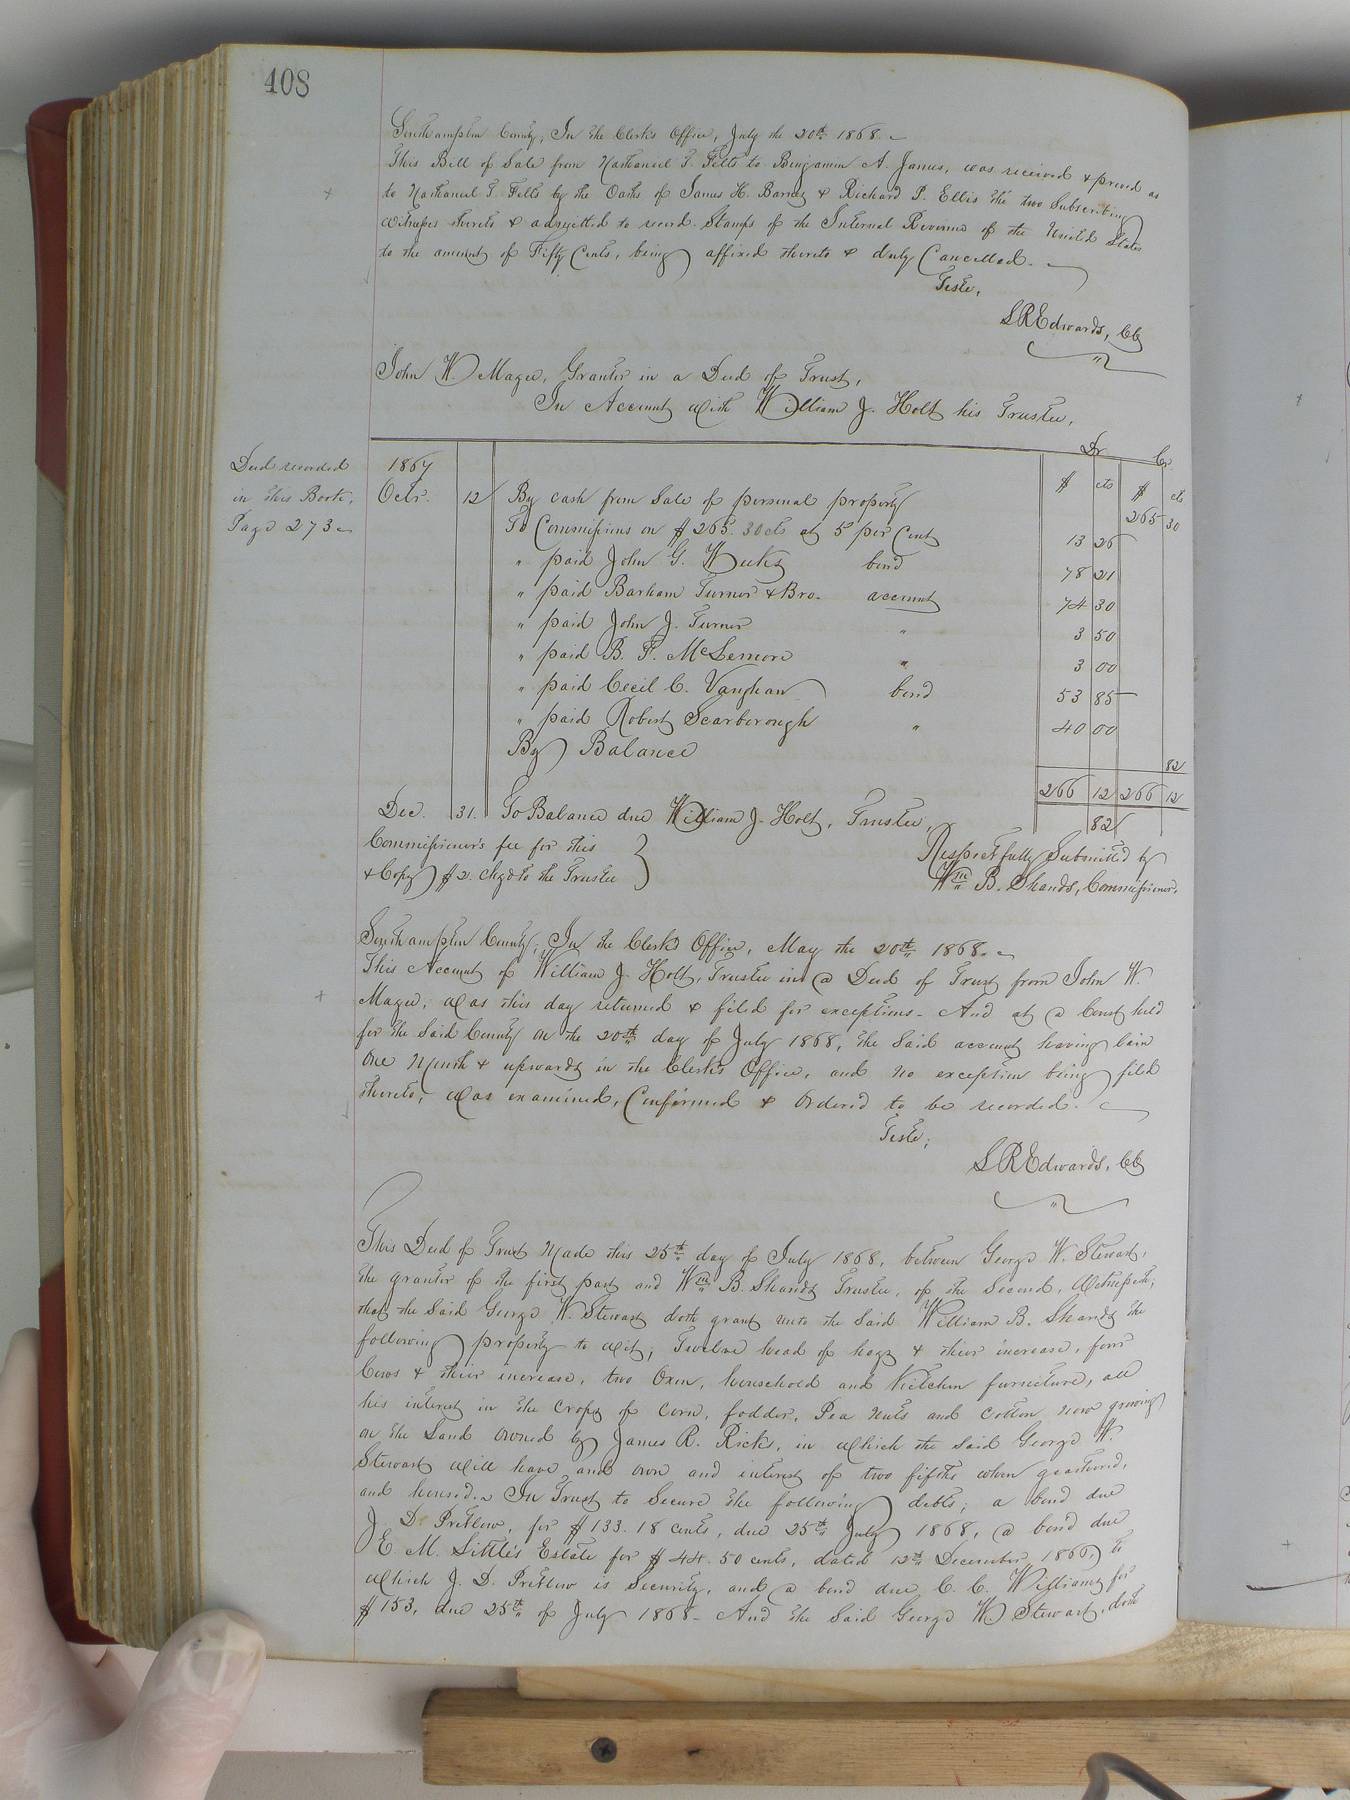 408
Southampton County, In the Clerks Office, July the 20th 1868.
This Bill of Sale from Nathaniel T. Felts to Benjamin A. James, was received & proved as
to Nathaniel T. Felts by the Oaths of James H. Barnes & Richard P. Ellis the two Subscribing
witnesses thereto & admitted to record. Stamps of the Internal Revenue of the United States
to the amount of Fifty Cents, being affixed thereto & duly Cancelled.
Teste,
L R Edwards, CC
John W. Magee, Grantor in a Deed of Trust,
In Account with William J. Holt his Trustee,
Dr Cr
Deed recorded
in this Book,
Page 273
1867 $ cts $ cts
Octr. 12 By cash from Sale of personal property 265 30
To Commissions on $265.30cts at 5 per Cent 13 26
" paid John G. Weeks bond 78 21
" paid Barham Turner & Bro. account 74 30
" paid John J. Turner " 3 50
" paid B. F. McLemore " 3 00
" paid Cecil C. Vaughan bond 53 85
" paid Robert Scarborough " 40 00
By Balance 82
266 12 266 12
Dec. 31. To Balance due William J. Holt, Trustee, 82
Commissioner's fee for this
& Copy $2. chgd to the Trustee
Respectfully Submitted by
Wm B. Shands, Commissioner.
Southampton County; In the Clerk's Office, May the 20th 1868.
This Account of William J. Holt, Trustee in a Deed of Trust from John W.
Magee, was this day returned & filed for exceptions. And at a Court held
for the Said County on the 20th day of July 1868, the Said account having bein
One Month & upwards in the Clerk's Office, and no exception being filed
thereto, was examined, Confirmed & Ordered to be recorded.
Teste;
L R Edwards, CC
This Deed of Trust Made this 25th day of July 1868, between George W. Stewart,
the grantor of the first part and Wm B. Shands Trustee, of the Second, Witnesseth;
that the Said George W. Stewart doth grant unto the Said William B. Shands the
following property to wit; Twelve head of hogs & their increase, four
Cows & their increase, two Oxen, household and Kitchen furniture, all
his interest in the crops of corn, fodder, Pea Nuts and cotton now growing
on the Land owned by James R. Ricks, in which the Said George W.
Stewart will have and own and interest of two fifths when gathered,
and housed. In Trust to Secure the following debts; a bond due
J. D. Pretlow, for $133.18 cents, due 25th July 1868, a bond due
E. M. Little's Estate for $44.50 cents, dated 12th December 1866, to
which J. D. Pretlow is Security, and a bond due C. C. Williams for
$153, due 25th of July 1868. And the Said George W Stewart, doth